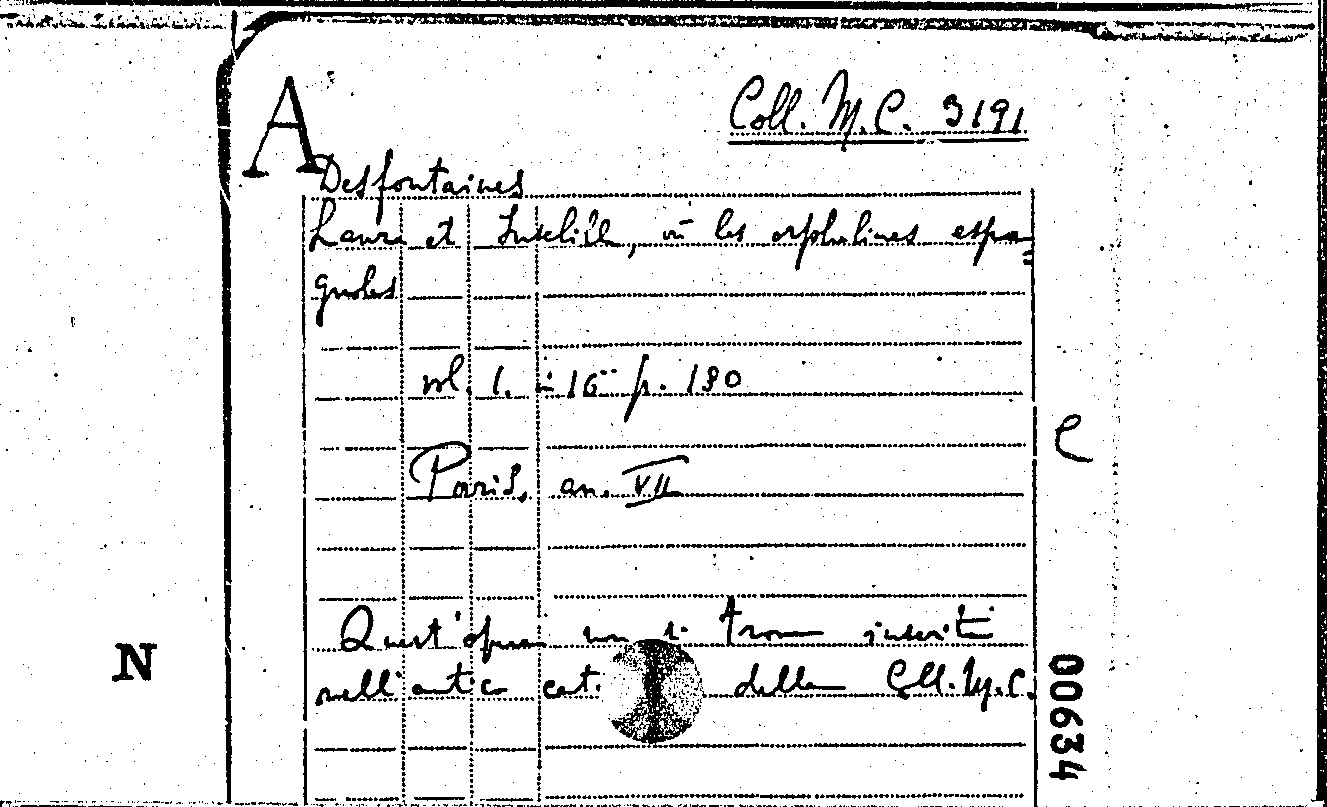 A
Coll. M. C. 3191
Desfontaines
Laure et ou les orphelines espa=
gnoles
vol. 1. in 16° p. 180
Paris, an. VII
C
Quest'opera non si trova inserita
N
nell'antico cat. della Coll. M. C.
00634